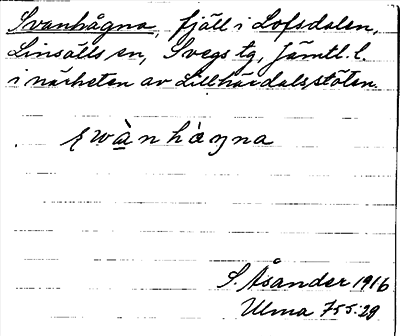 Svanhågna, fjäll i Lofsdalen,
Linsälls sn, Svegs tg, Jämtl. l.
i närheten av Lillhärdalsstöten.
swànhàŋna
S. Åsander 1916
Ulma 755:28